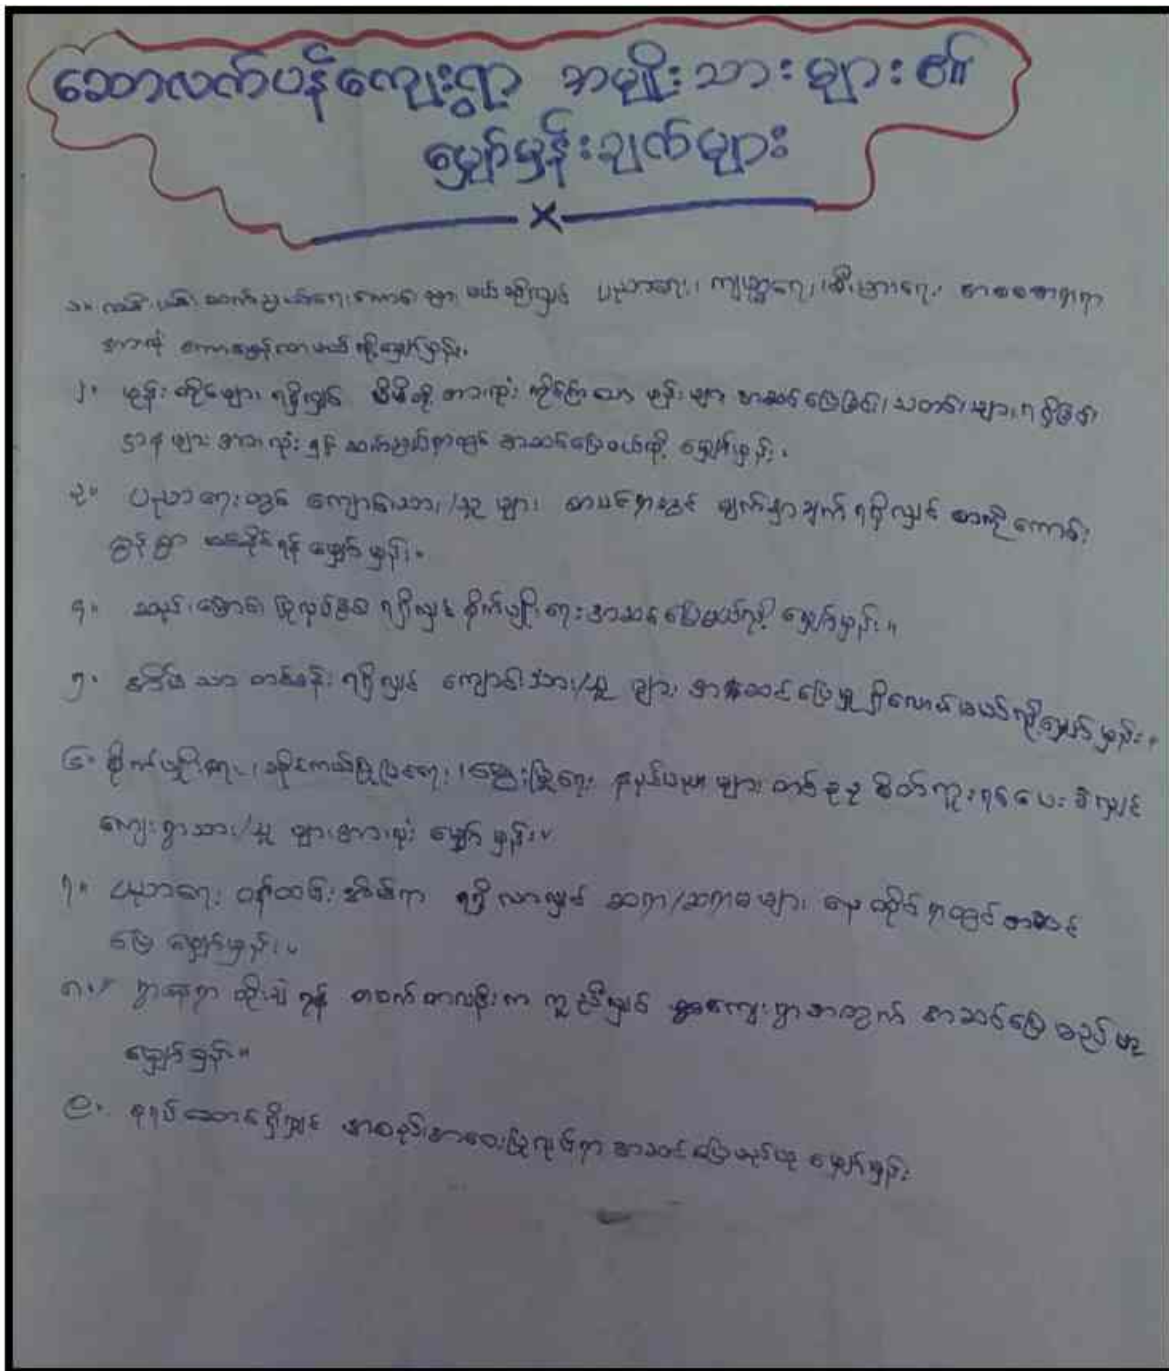 ဆောလက်ပန်ကျေးရွာ အမျိုးသားများ၏
မျှော်မှန်းချက်များ
x
၁။ လမ်းပမ်း ဆက်သွယ်ရေးကောင်းမွန်မယ်ဆိုလျှင် ပညာရေး၊ ကျန်းမာရေး၊ စီးပွားရေး၊ အစစအရာရာ
အားလုံး ကောင်းမွန်လာမယ်လို့မျှော်မှန်း။
၂။ ဖုန်းတိုင်များ ရရှိလျှင် မိမိတို့ အားလုံး ကိုင်ကြသော ဖုန်းများ အဆင်ပြေခြင်း၊ သတင်းများ ရရှိခြင်း၊
ဌာနများအားလုံးနှင့် ဆက်သွယ်ရာတွင် အဆင်ပြေမယ်လို့ မျှော်မှန်း။
၃။ ပညာရေးတွင် ကျောင်းသား/သူများ စာသင်ရာတွင် မျက်နှာကျက် ရရှိလျှင် စာကိုကောင်း
မွန်စွာ သင်နိုင်ရန် မျှော်မှန်း။
၄။ ဆည်မြောင်း ပြုလုပ်ခွင့် ရရှိလျှင် စိုက်ပျိုးရေး အဆင်ပြေမယ်လို့ မျှော်မှန်း။
၅။ အိမ်သာ တစ်ခန်း ရရှိလျှင် ကျောင်းသား/သူများ အဆင်ပြေမှု ရှိလာမယ်လို့မျှော်မှန်း။
၆။ စိုက်ပျိုးရေး၊ ခြံမြေရေး၊ မွေးမြူရေး နည်းပညာများ တစ်ခုခု စိတ်ကူးရစ်ပေးခဲ့လျှင်
ကျေးရွာသား/သူများအားလုံး မျှော်မှန်း။
၇။ ပညာရေး ဝန်ထမ်းအိမ်ရာ ရရှိလာလျှင် ဆရာ/ဆရာမများ နေထိုင်ရာတွင် အဆင်
ပြေ မျှော်မှန်း။
၈။ ရွာနေရာ ထိုးမဲ့ရန် တစ်ဖက်တလမ်းက ကူညီလျှင် ကျေးရွာအတွက် အဆင်ပြေမည်ဟု
မျှော်မှန်း။
၉။ စုရပ်ဆောင်ရှိလျှင် အစည်းအဝေးပြုလုပ်ရာ အဆင်ပြေမည်ဟု မျှော်မှန်း